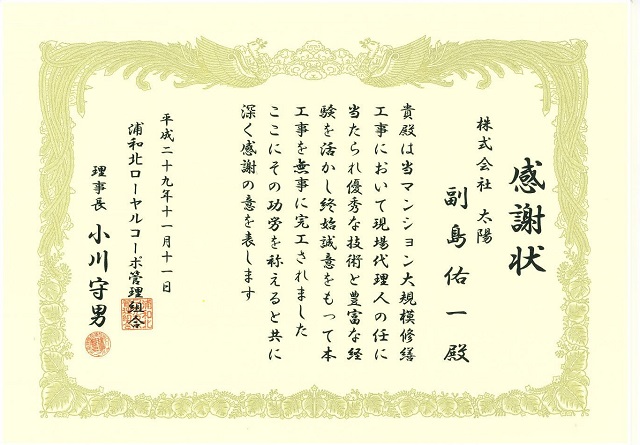 感謝状
株式会社 太陽
副島佑一殿
貴殿は当マンション大規模修繕
工事において現場代理人の任に
当たられ優秀な技術と豊富な経
験を活かし終始誠意をもって本
工事を無事に完工されました
ここにその功労を称えると共に
深く感謝の意を表します
平成二十九年十一月十一日
浦和北ローヤルコーポ管理組合
理事長 小川守男